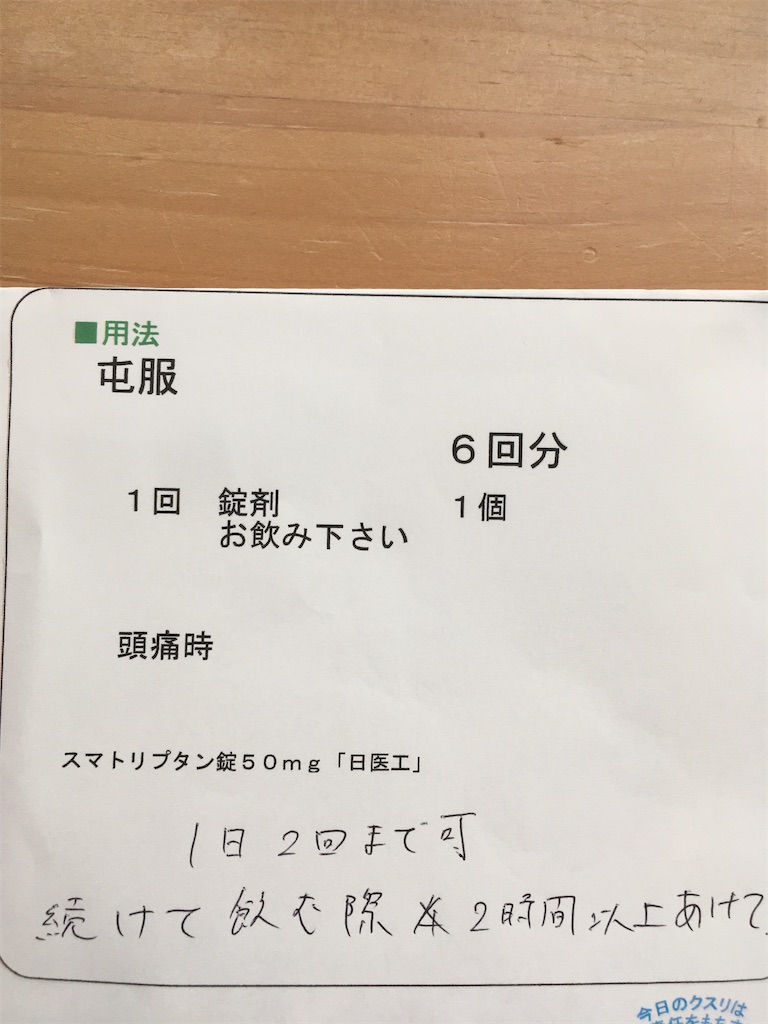 ■用法
屯服
6回分
1回 錠剤 1個
お飲み下さい
頭痛時
スマトリプタン錠50mg「日医工」
1日2回まで可
続けて飲む際は2時間以上あけて
今日のクスリは